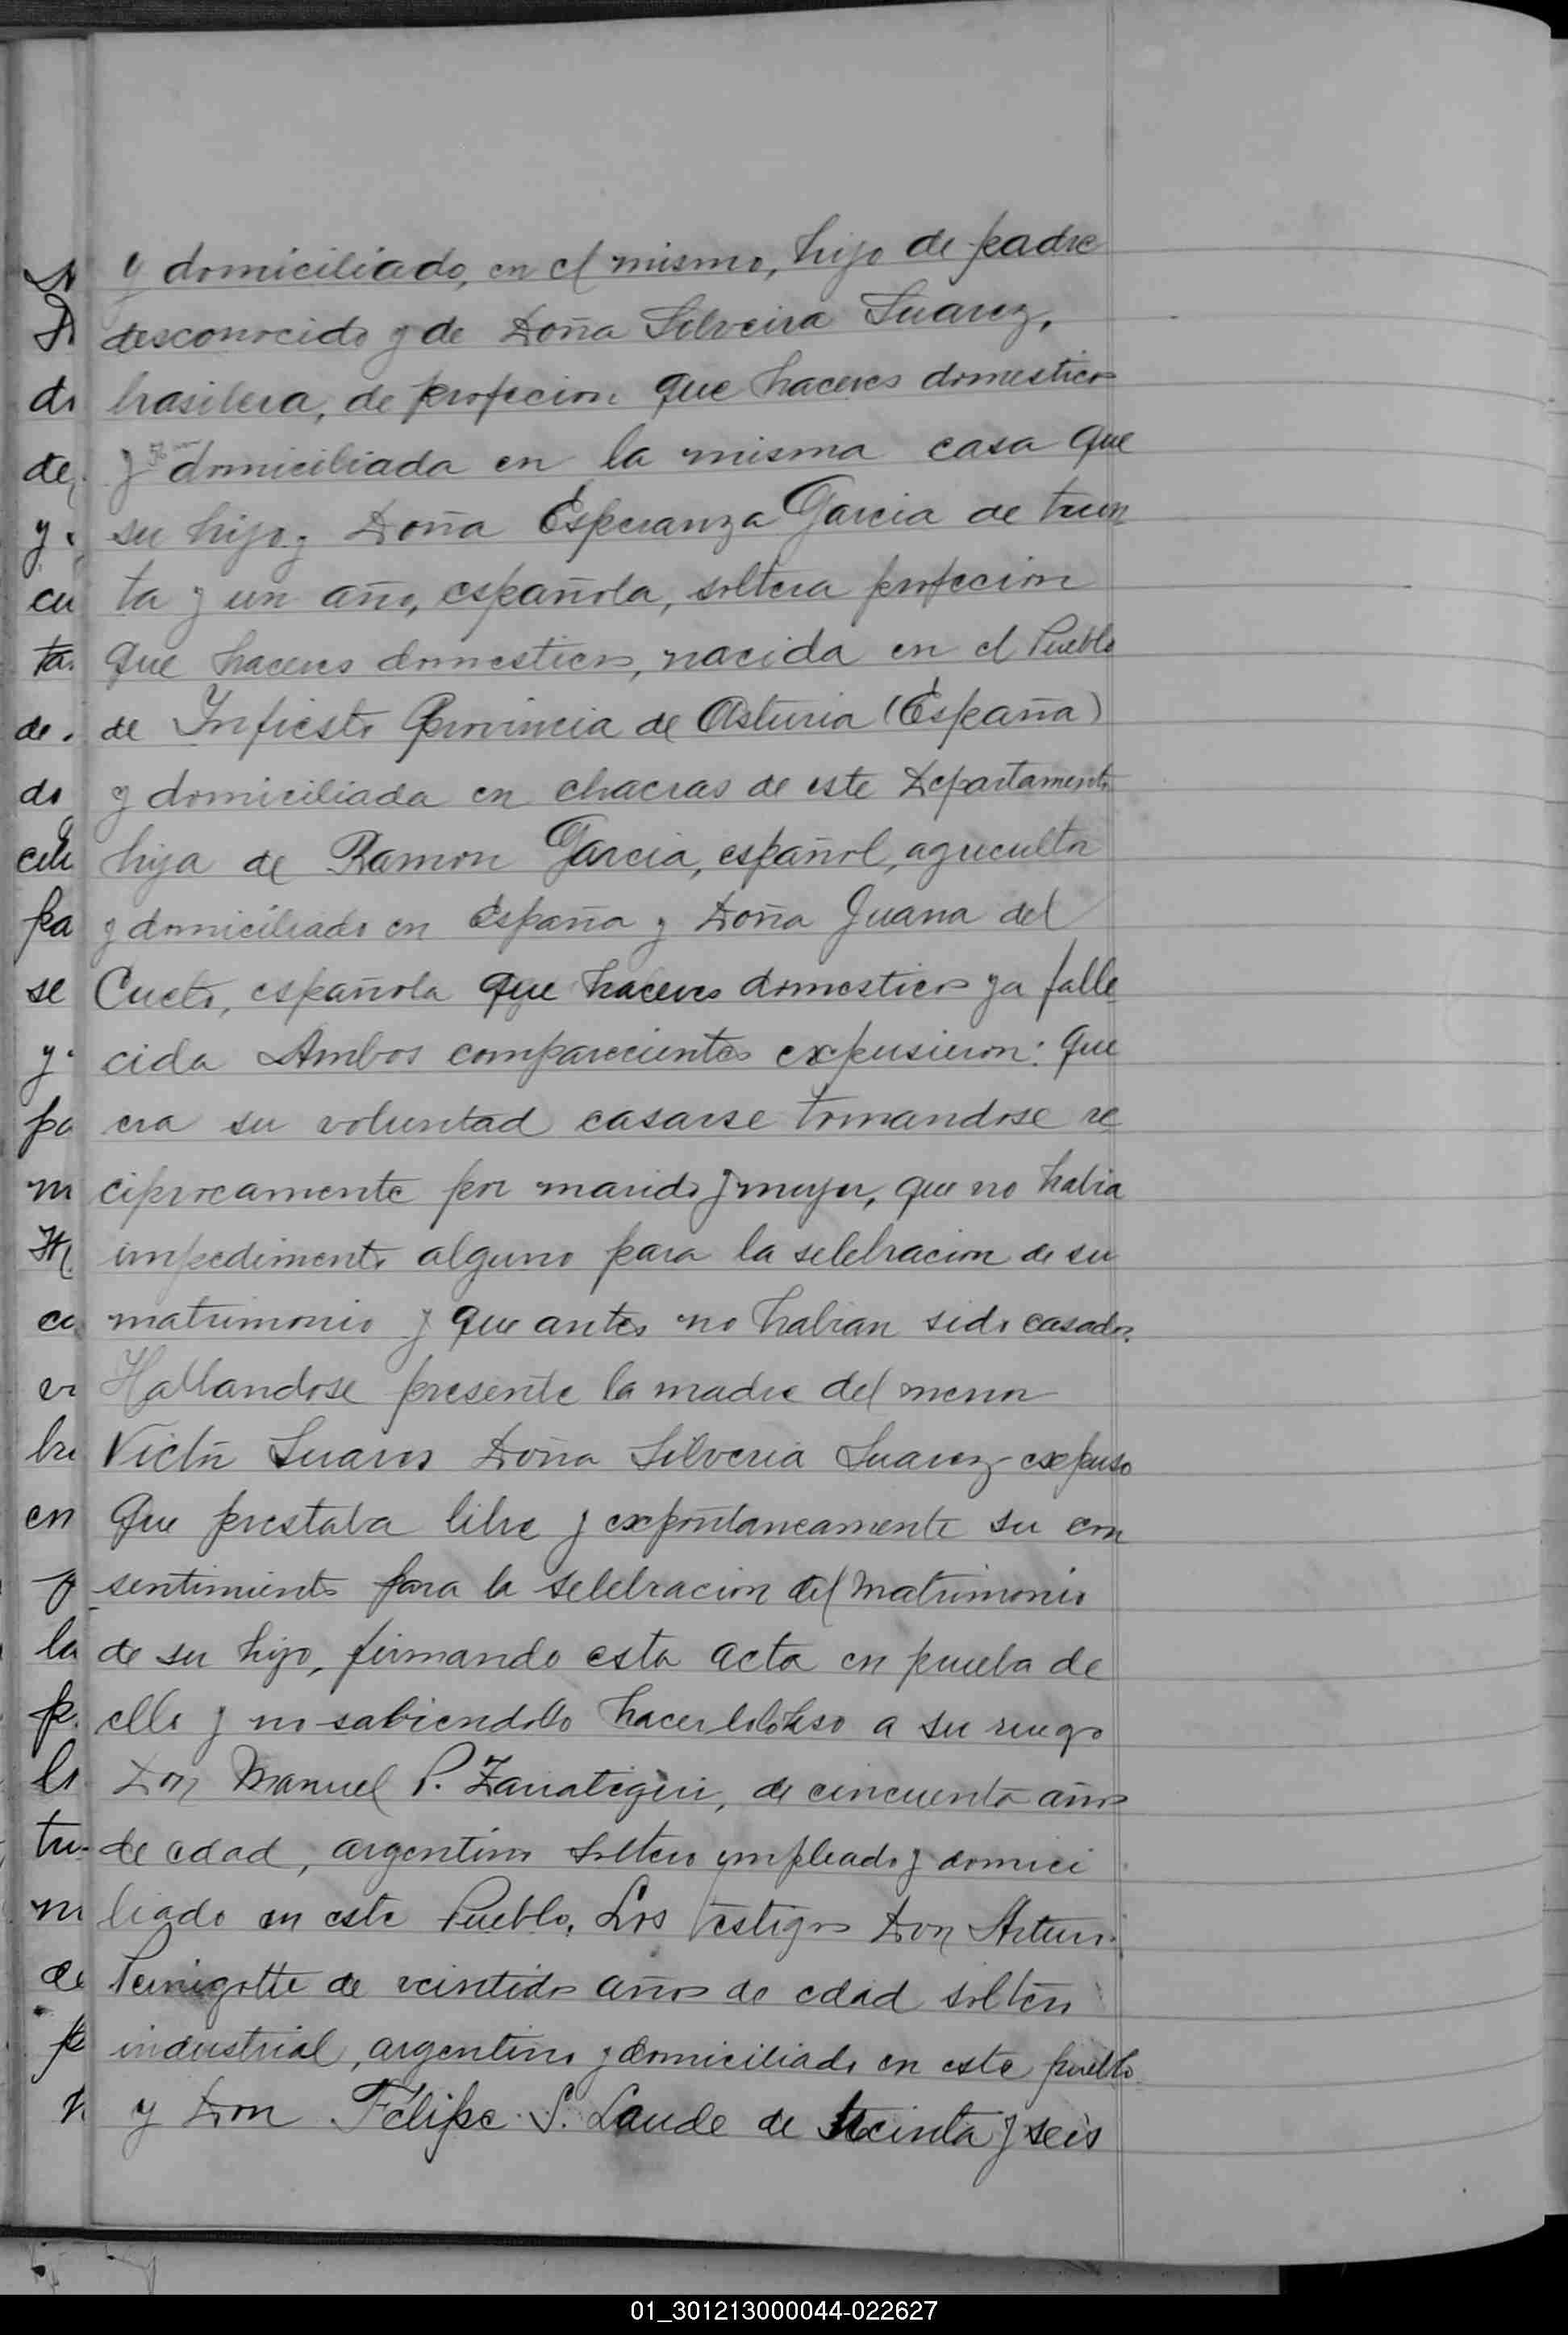 y domiciliado, en el mismo, hijo de padre
desconocido y de Doña Silveira Suarez,
brasilera, de profecion que haceres domesticos
y domiciliada en la misma casa que
su hijo y Doña Esperanza Garcia de trein
ta y un año, española, soltera profecion
que haceres domesticos, nacida en el Pueblo
de Infiesto Provincia de Asturia (España)
y domiciliada en chacras de este Departamento
hija de Ramon Garcia, español, agricultor
y domiciliado en España y Doña Juana del
Cueto, española que haceres domesticos ya falle
cida Ambos comparecientes expusieron: que
era su voluntad casarse tomandose re
ciprocamente por marido y mujer, que no habia
impedimento alguno para la selebracion de su
matrimonio y que antes no habian sido casados.
Hallandose presente la madre del menor
Victor Suares Doña Silveria Suarez expuso
que prestaba libre y expontaneamente su con
sentimiento para la selebracion del matrimonio
de su hijo, firmando esta acta en prueba de
ello y no sabiendolo hacer lo hiso a su ruego
Don Manuel P. de cincuenta años
de edad, argentino soltero empleado y domici
liado en este Pueblo, Los testigos Don Arturo
de veintidos años de edad soltero
industrial, argentino y domiciliado en este pueblo
y Don Felipe S. Laude de treinta y seis
01_301213000044-022627